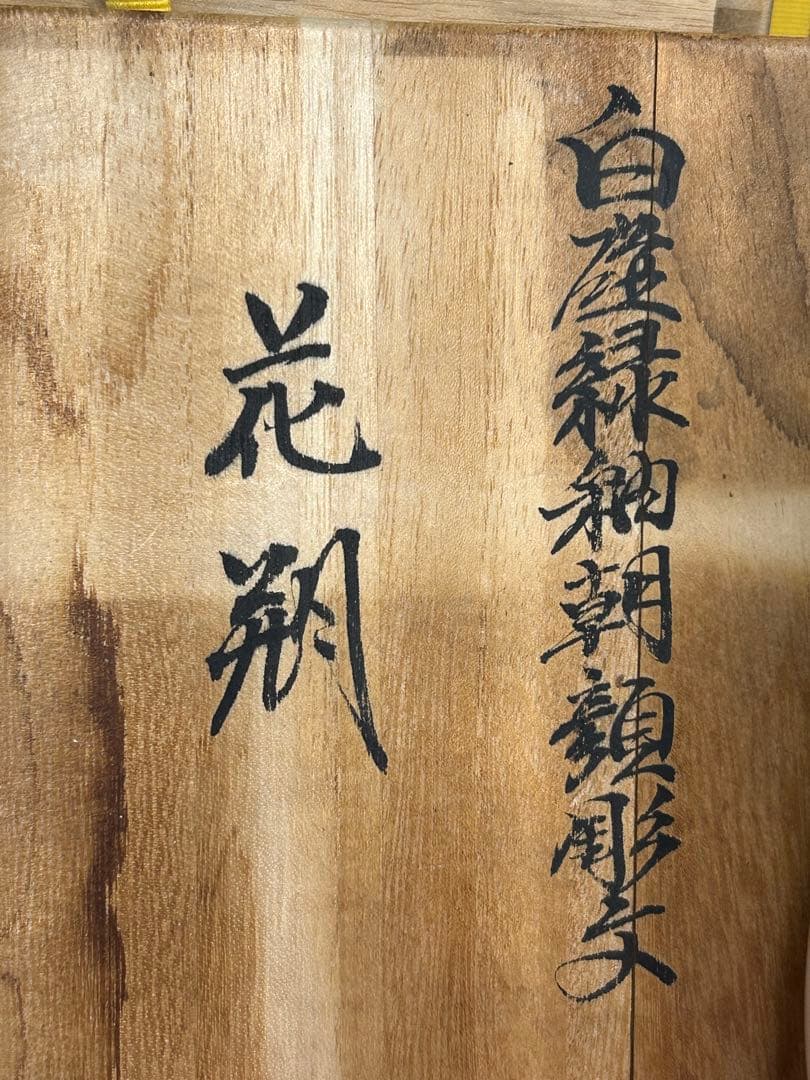 白塵緑釉朝顔彫文
花瓶